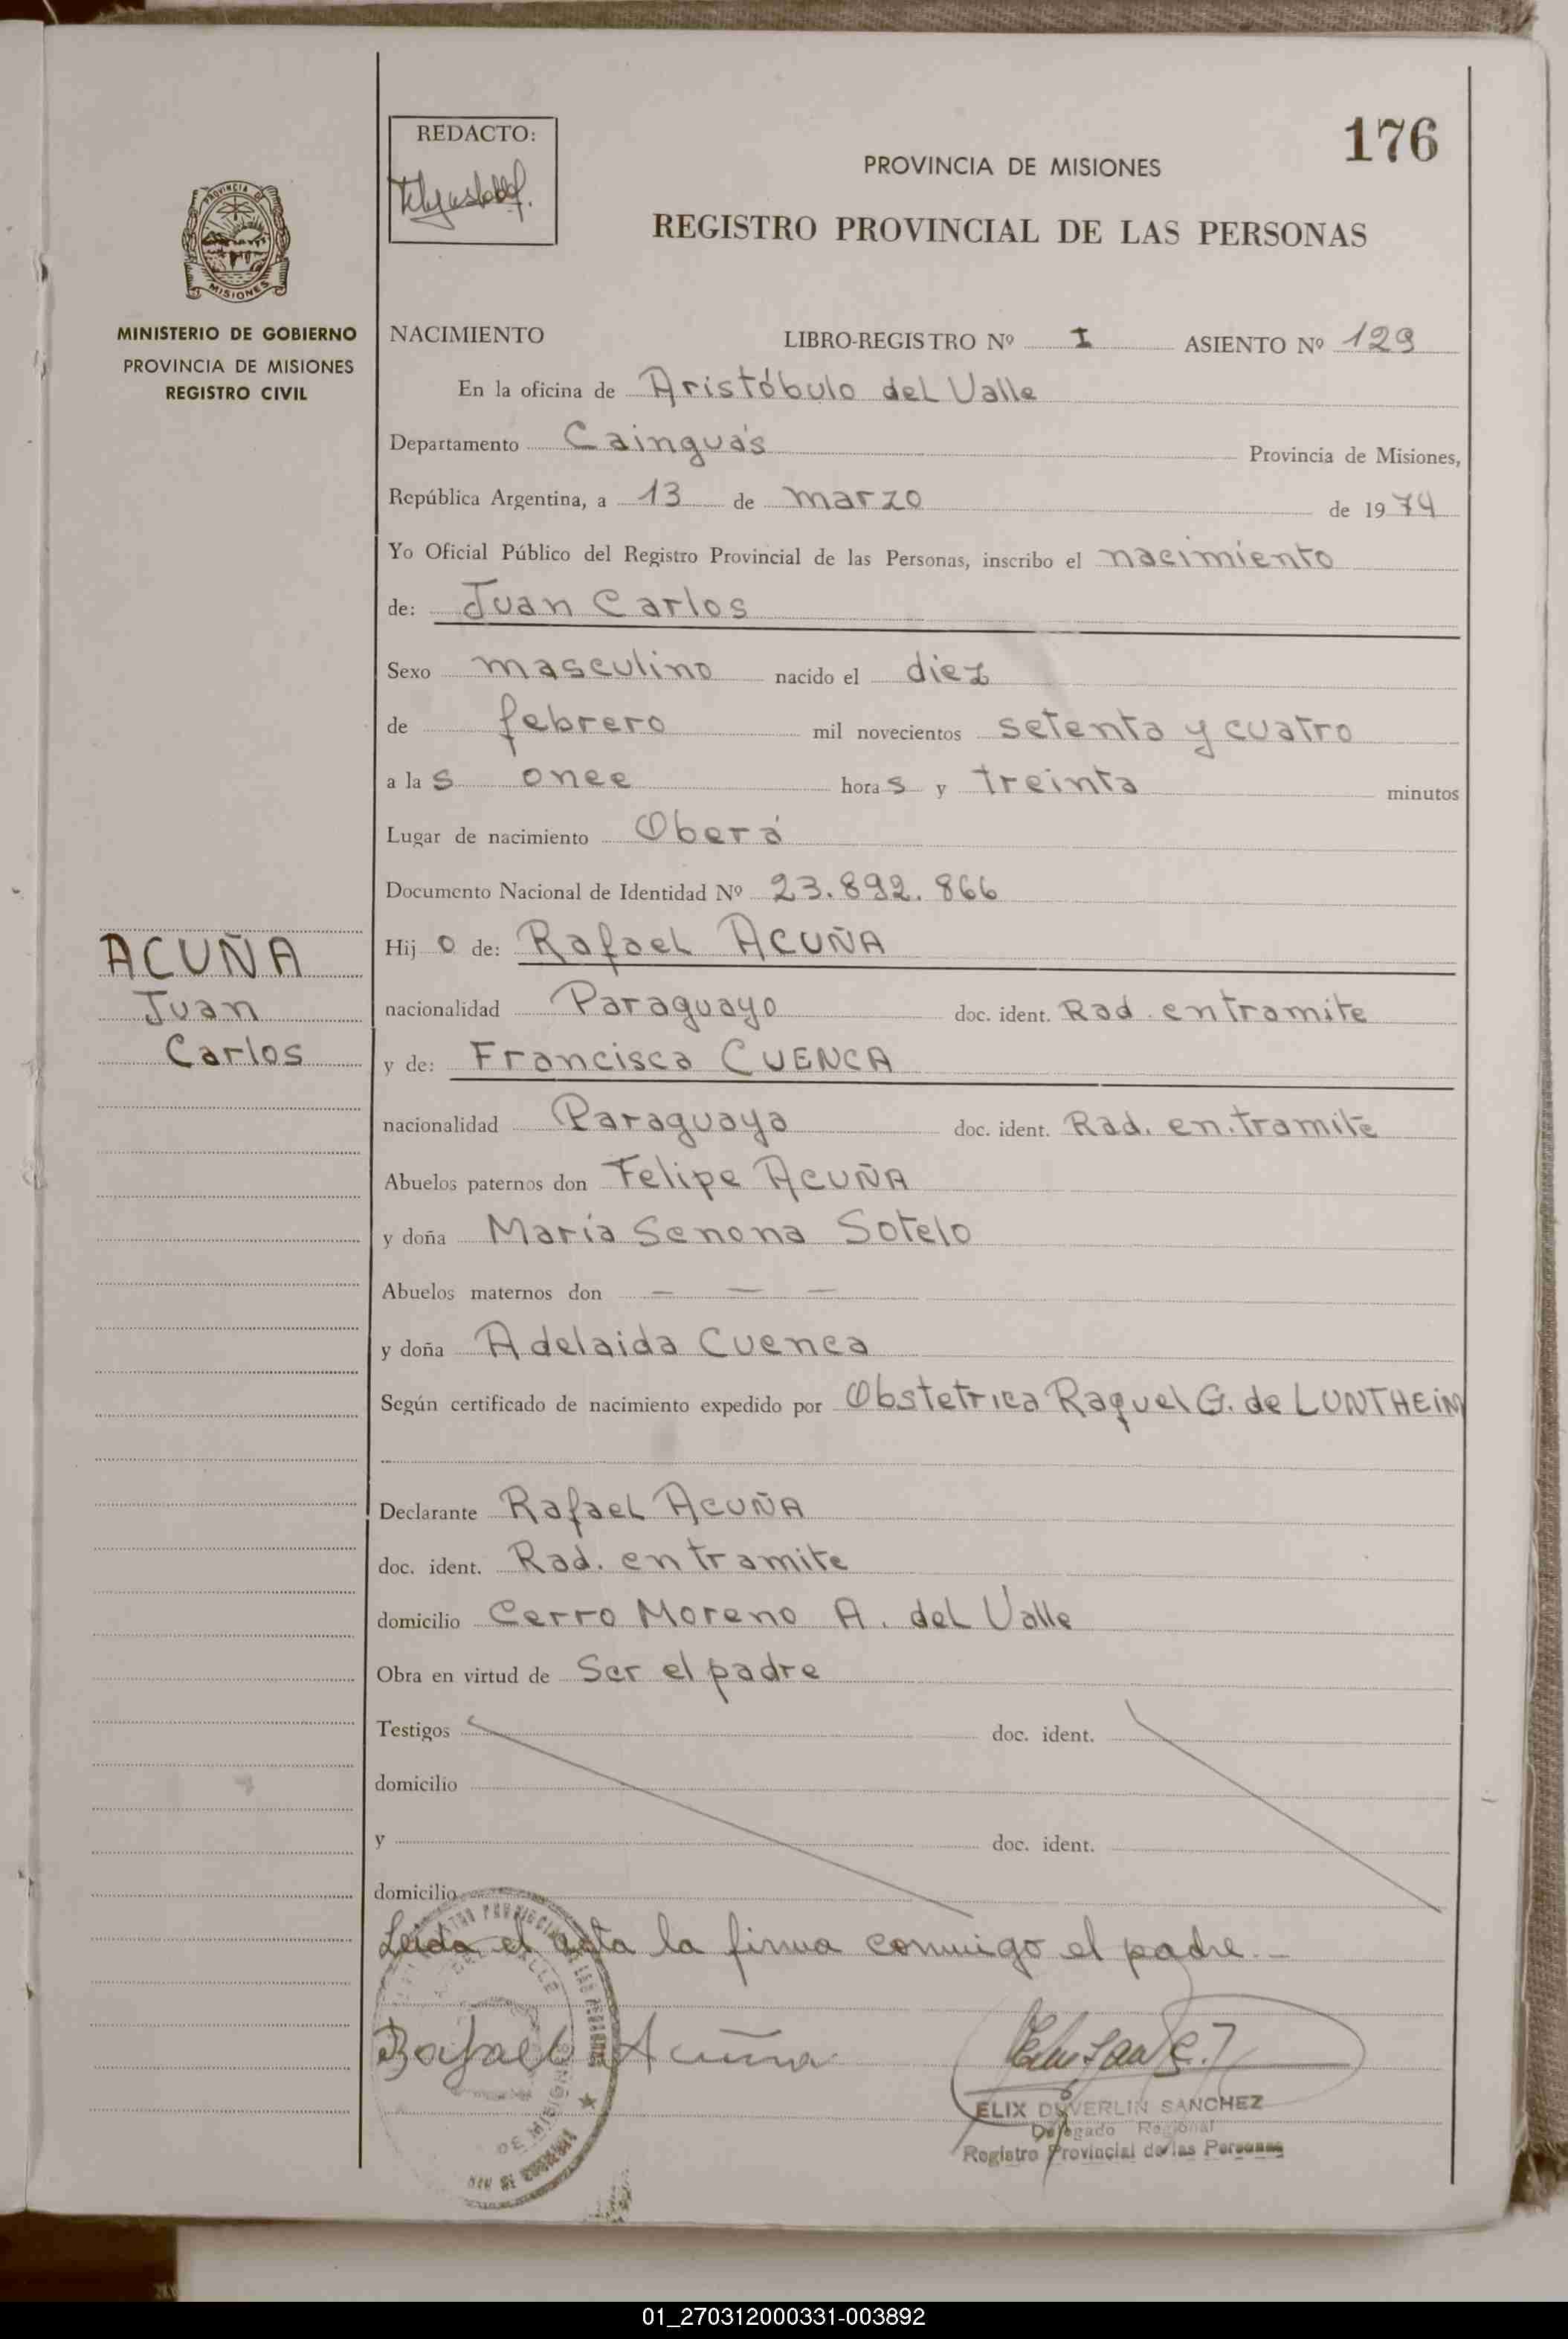 176
REDACTO:
PROVINCIA DE MISIONES
REGISTRO PROVINCIAL DE LAS PERSONAS
PROVINCIA DE
MISIONES
MINISTERIO DE GOBIERNO
PROVINCIA DE MISIONES
REGISTRO CIVIL
NACIMIENTO LIBRO-REGISTRO Nº I ASIENTO Nº 129
En la oficina de Aristóbulo del Valle
Departamento Cainguás Provincia de Misiones,
República Argentina, a 13 de marzo de 1974
Yo Oficial Público del Registro Provincial de las Personas, inscribo el nacimiento
de: Juan Carlos
Sexo masculino nacido el diez
de febrero mil novecientos setenta y cuatro
a las once horas y treinta minutos
Lugar de nacimiento Oberá
Documento Nacional de Identidad Nº 23.892.866
ACUÑA
Juan
Carlos
Hijo de: Rafael ACUÑA
nacionalidad Paraguayo doc. ident. Rad. en tramite
y de: Francisca CUENCA
nacionalidad Paraguaya doc. ident. Rad. en tramite
Abuelos paternos don Felipe ACUÑA
y doña María Senona Sotelo
Abuelos maternos don — — —
y doña Adelaida Cuenca
Según certificado de nacimiento expedido por Obstetrica Raquel G. de LUNTHEIM
Declarante Rafael ACUÑA
doc. ident. Rad. en tramite
domicilio Cerro Moreno A. del Valle
Obra en virtud de Ser el padre
Testigos doc. ident.
domicilio
y doc. ident.
domicilio
Leida el acta la firma conmigo el padre.-
Rafael Acuña
ELIX DUVERLIN SANCHEZ
Delegado Regional
Registro Provincial de las Personas
01_270312000331-003892